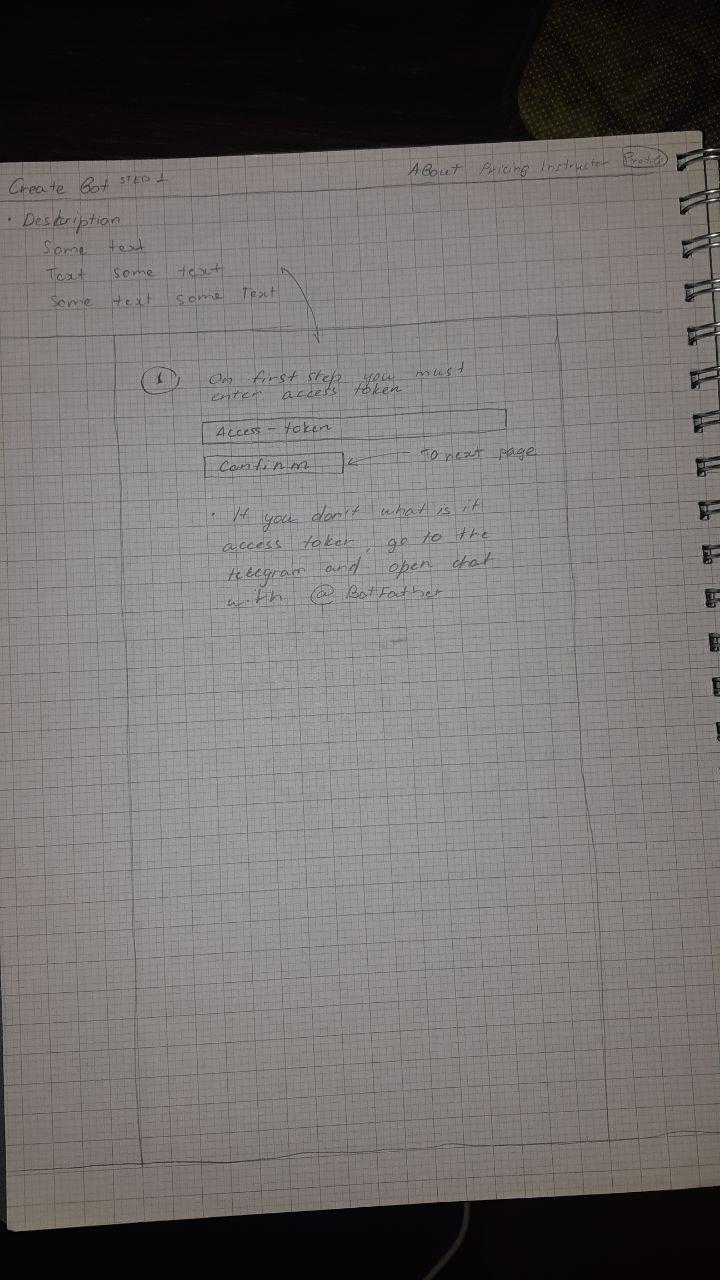 Create Bot STEP 1
About Pricing Instructor
• Description
Some text
Text some text
Some text some Text
1 On first step you must
enter access token
Access - token
Confirm
To next page
• If you don't what is it
access token, go to the
telegram and open chat
with @ BotFather